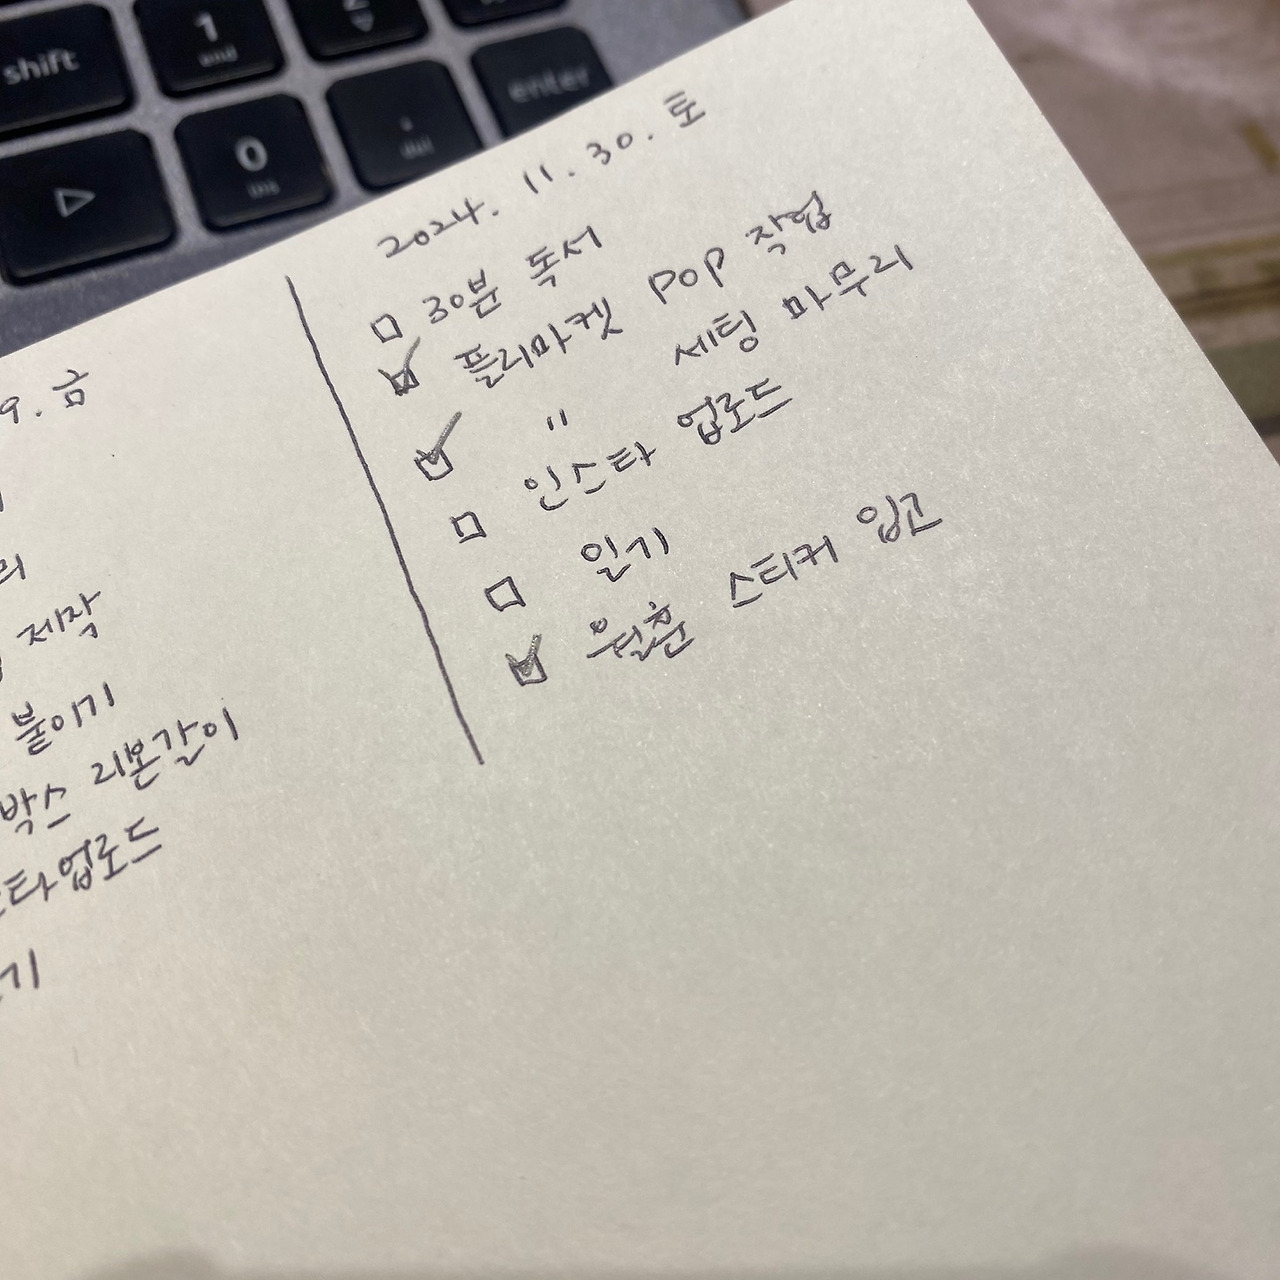 shift
1
end
2
enter
0
ins
.
del
9. 금
제작
붙이기
박스 리본갈이
타업로드
기
2024. 11. 30. 토
□ 30분 독서
☑ 플리마켓 POP 작업
☑ " 세팅 마무리
□ 인스타 업로드
□ 일기
☑ 스티커 입고